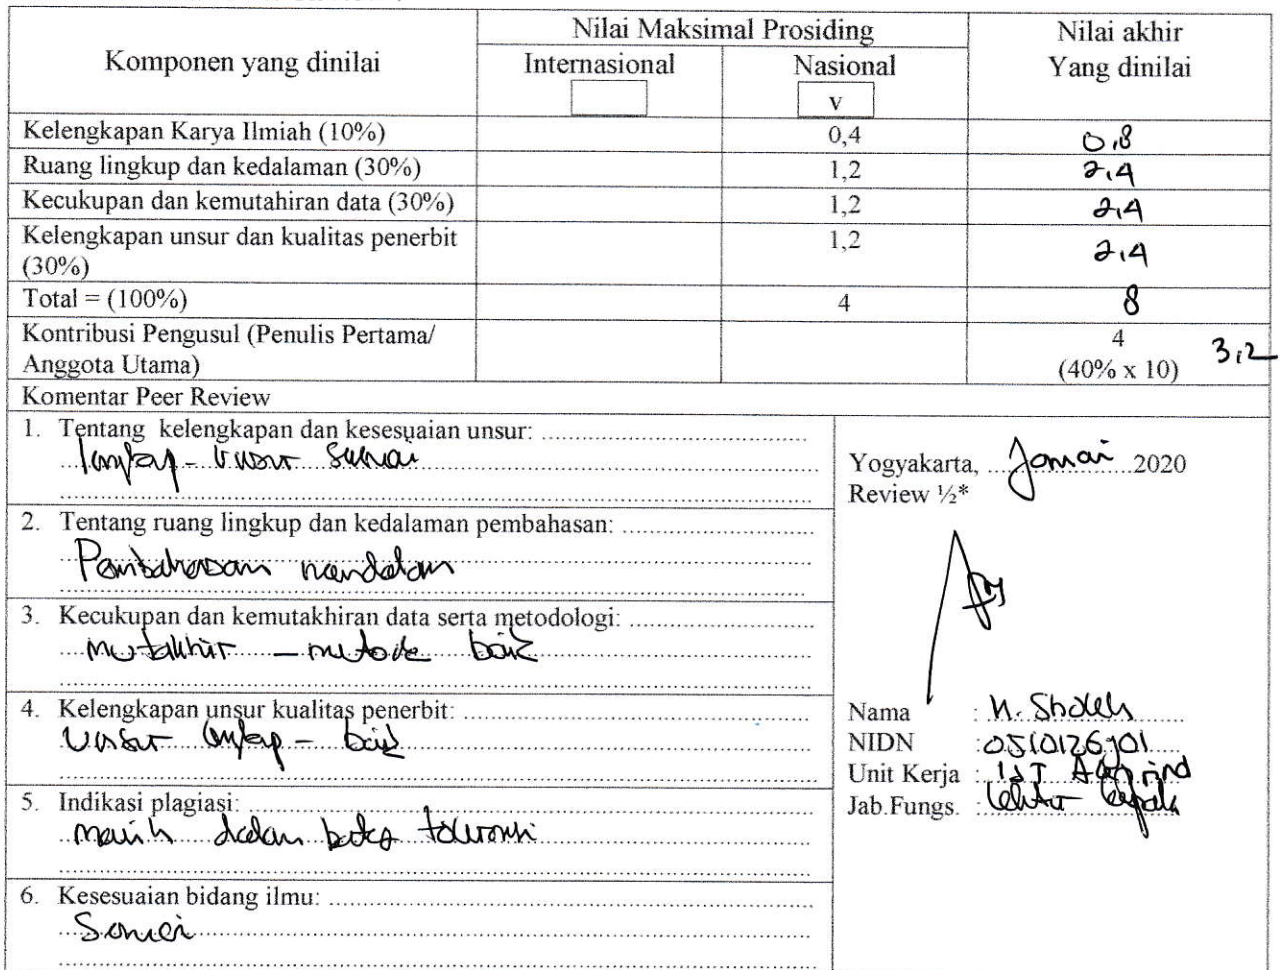 Komponen yang dinilai
Nilai Maksimal Prosiding
Nilai akhir
Yang dinilai
Internasional
Nasional
v
Kelengkapan Karya Ilmiah (10%) 0,4 0,8
Ruang lingkup dan kedalaman (30%) 1,2 2,4
Kecukupan dan kemutahiran data (30%) 1,2 2,4
Kelengkapan unsur dan kualitas penerbit 1,2 2,4
(30%)
Total = (100%) 4 8
Kontribusi Pengusul (Penulis Pertama/ 4 3,2
Anggota Utama) (40% x 10)
Komentar Peer Review
1. Tentang kelengkapan dan kesesuaian unsur:
lengkap - unsur sesuai
2. Tentang ruang lingkup dan kedalaman pembahasan:
Pembahasan mendalam
3. Kecukupan dan kemutakhiran data serta metodologi:
mutakhir - metode baik
4. Kelengkapan unsur kualitas penerbit:
Unsur lengkap - baik
5. Indikasi plagiasi:
masih dalam batas toleransi
6. Kesesuaian bidang ilmu:
Sesuai
Yogyakarta, Januari 2020
Review ½*
Nama : M. Sholeh
NIDN : 0510126901
Unit Kerja : IST Akprind
Jab.Fungs. : Lektor Kepala